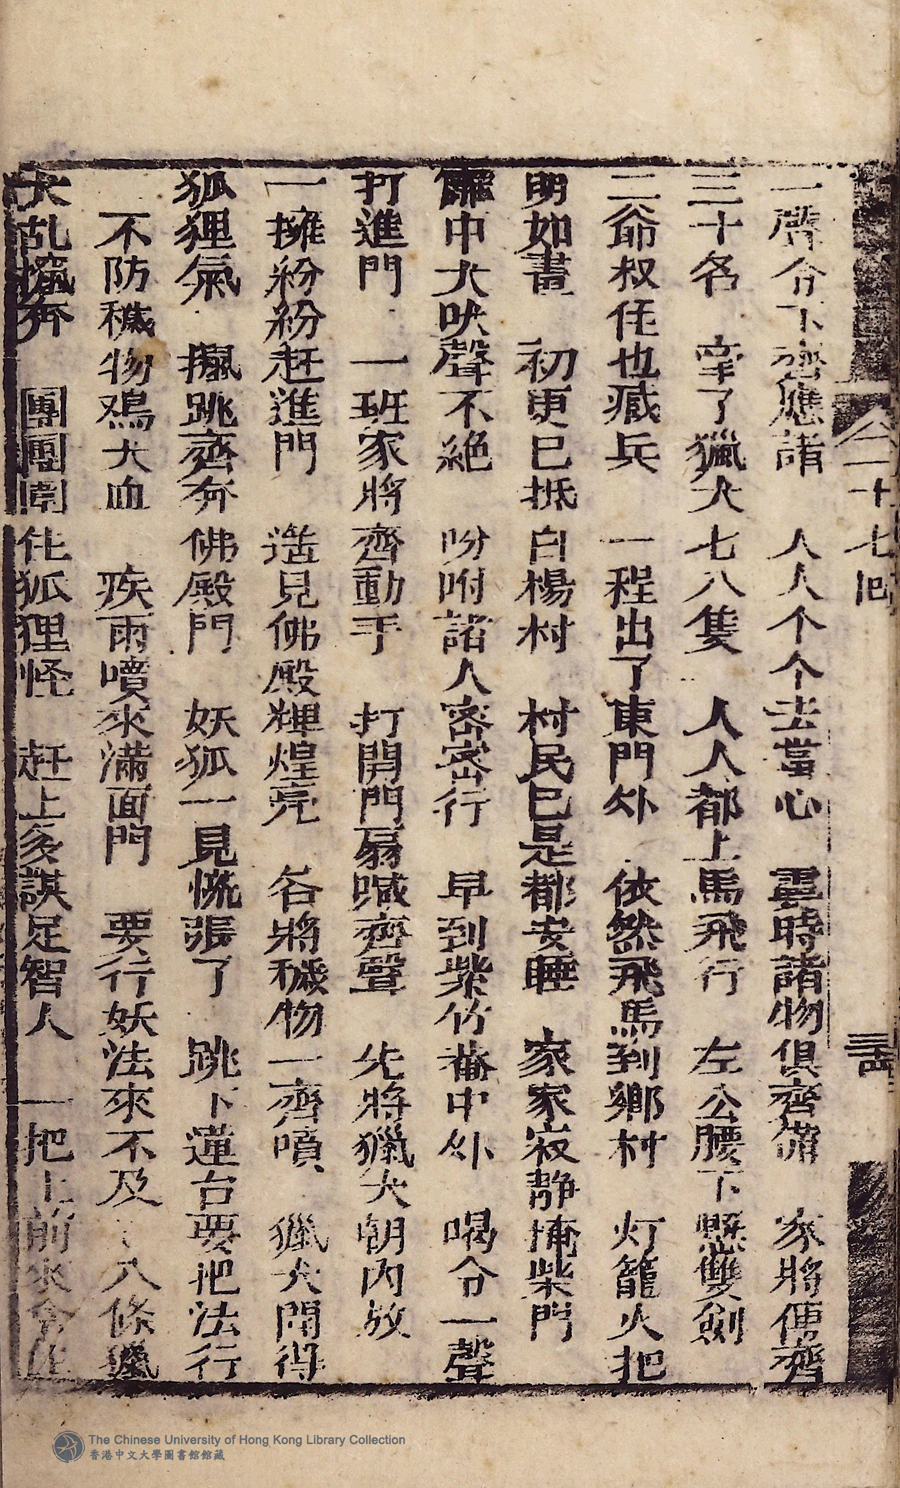 二十七囘
一聲令下齊應諾　人人个个去當心　霎時諸物俱齊備　家將傳齊
三十名　牽了獵犬七八隻　人人都上馬飛行　左公腰下懸雙劍
二爺叔侄也藏兵　一程出了東門外　依然飛馬到鄉村　灯籠火把
明如晝　初更巳抵白楊村　村民巳是都安睡　家家寂静掩柴門
籬中犬吠聲不絕　吩咐諸人密密行　早到紫竹菴中外　喝令一聲
打進門　一班家將齊動手　打開門扇喊齊聲　先將獵犬朝內放
一擁紛紛赶進門　造見佛殿輝煌亮　各將穢物一齊噴　獵犬聞得
狐狸氣　攧跳齊奔佛殿門　妖狐一見慌張了　跳下蓮台要把法行
不防穢物鳮犬血　疾雨噴來滿面門　要行妖法來不及　八條獵
犬乱攛奔　團團圍住狐狸怪　赶上多謀足智人　一把上前來拿住
The Chinese University of Hong Kong Library Collection
香港中文大學圖書館館藏